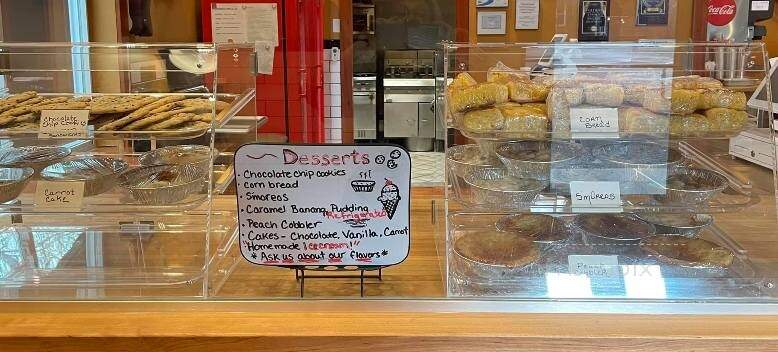 Coca-Cola
Chocolate
Chip Cookie
Carrot
Cake
Desserts
• Chocolate chip cookies
• corn bread
• Smoreos
• Caramel Banana Pudding
Refrigerated
• Peach Cobbler
• Cakes - Chocolate, Vanilla, Carrot
"Homemade Icecream!"
* Ask us about our flavors *
Corn
Bread
Smoreos